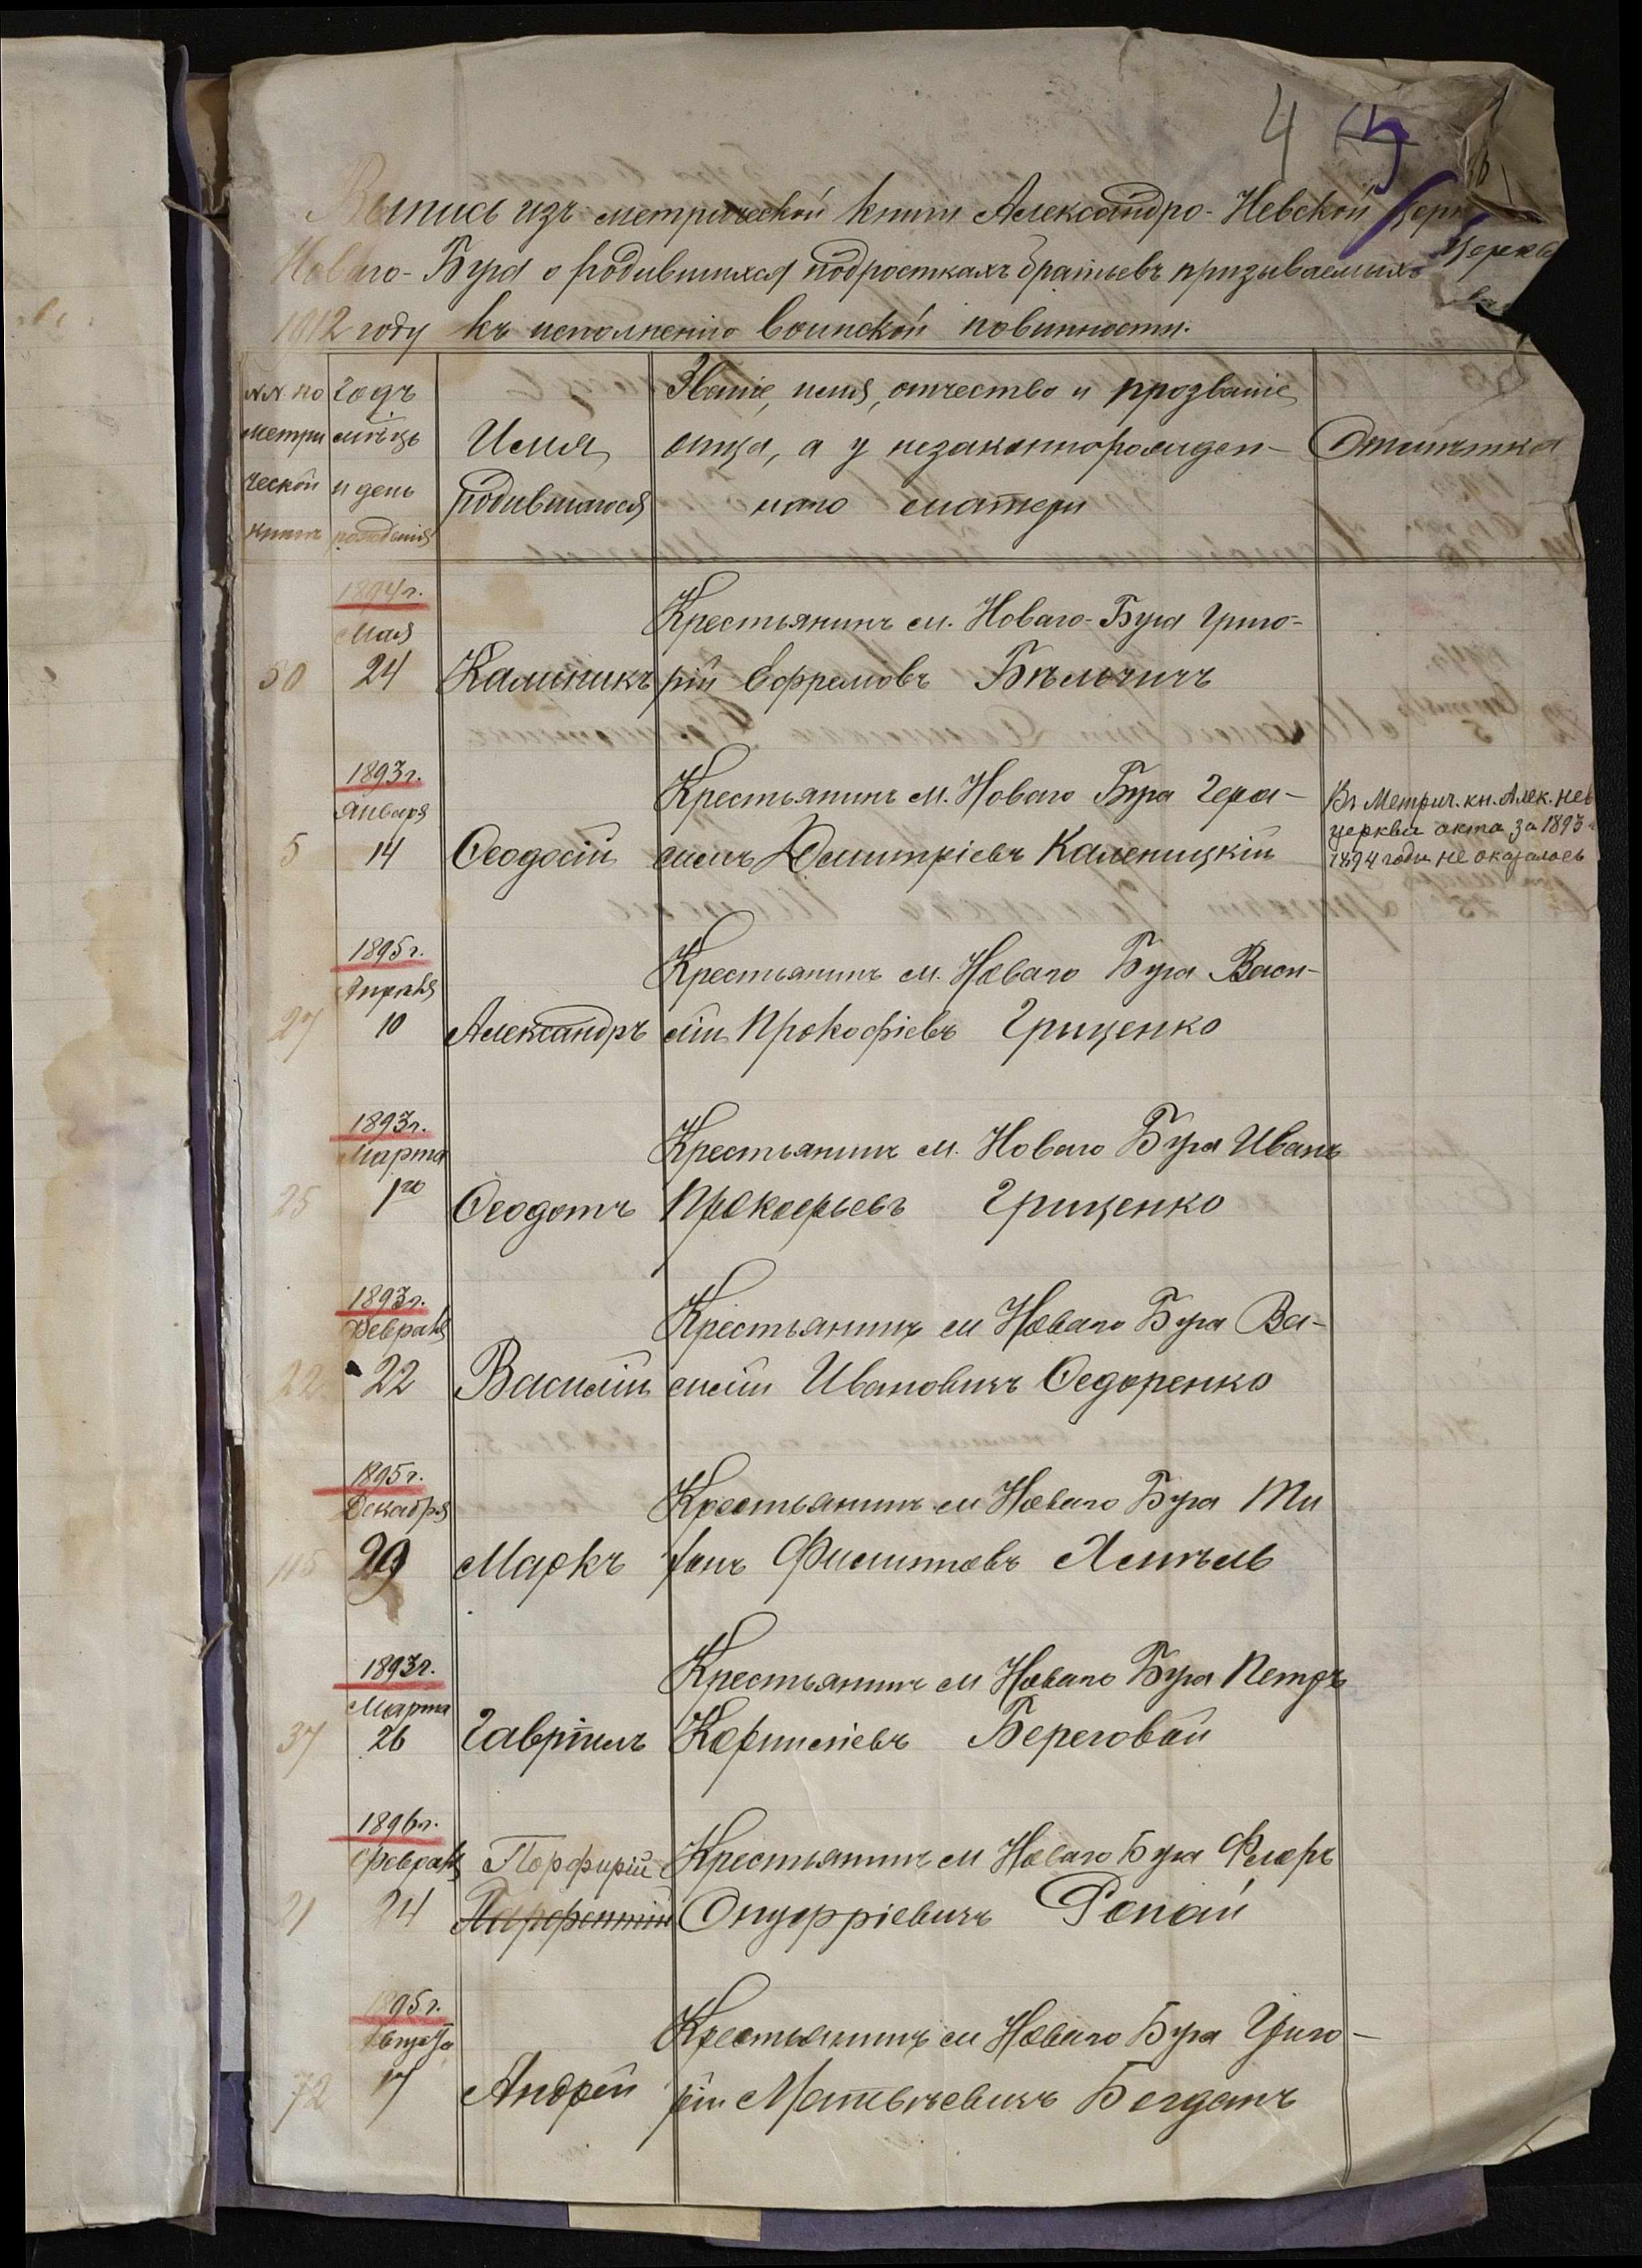 4
Выпись изъ метрической книги Александро-Невской церк
Церкви
Новаго-Буга о родившихся подросткахъ братьевъ призываемыхъ
1912 году къ исполненію воинской повинности.
№№ по метри ческой книгѣ
Годъ мѣсяцъ и день рожденія
Имя родившагося
Званіе, имя, отчество и прозваніе
отца, а у незаконнорожден-
наго матери
Отмѣтка
1894 г.
Мая
Крестьянинъ м. Новаго-Буга Григо-
50 24 Калиникъ рій Ефремовъ Бѣльчичъ
1893 г.
Января
Крестьянинъ м. Новаго Буга Гера-
5 14 Ѳеодосій симъ Димитріевъ Каленицкій
Въ Метрич. кн. Алек. Нев
церкви акта за 1893
1894 годы не оказалось
1895 г.
Апрѣля
Крестьянинъ м. Новаго Буга Васи-
27 10 Александръ лій Прокофіевъ Гриценко
1893 г.
Марта
Крестьянинъ м. Новаго Буга Иванъ
25 1го Ѳеодотъ Прокофьевъ Гриценко
1893 г.
Февраля
Крестьянинъ м Новаго Буга Ва-
22 22 Василій силій Ивановичъ Ѳедоренко
1895 г.
Декабря
Крестьянинъ м Новаго Буга Ми
115 29 Маркъ ронъ Филипповъ
1893 г.
Марта
Крестьянинъ м Новаго Буга Петръ
37 26 Гавріилъ Корниліевъ Береговой
1896 г.
Февраля Порфирій Крестьянинъ м Новаго Буга Ѳедоръ
21 24 Парфентій Онуфріевичъ Репай
1895 г.
Августа
Крестьянинъ м Новаго Буга Григо-
72 17 Андрей рій Матвѣевичъ Богданъ